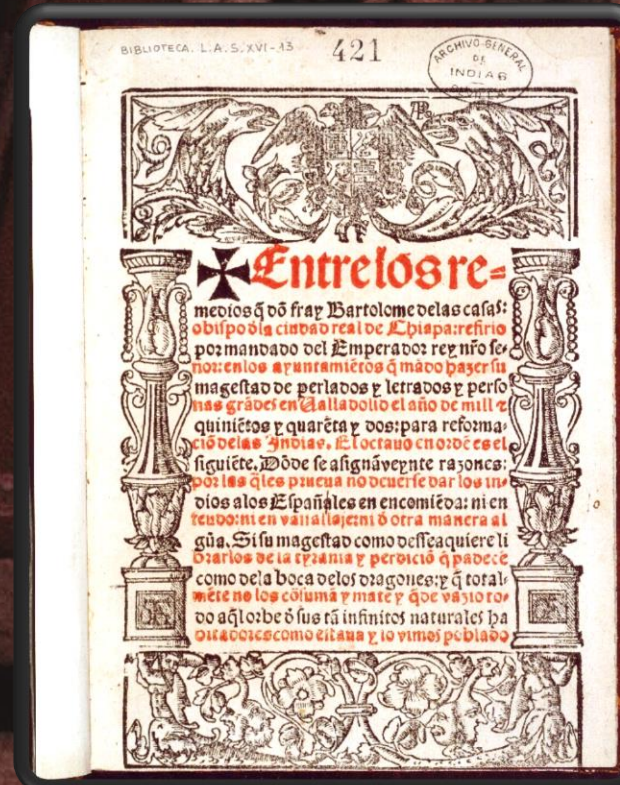 BIBLIOTECA. L.A. S. XVI-13
421
ARCHIVO GENERAL
DE
INDIAS
Entre los re=
medios q̃ dõ fray Bartolome delas casas:
obispo dela ciudad real de Chiapa: refirio
por mandado del Emperador rey nr̃o se-
ñor: enlos ayuntamiẽtos q̃ mãdo hazer su
magestad de perlados y letrados y perso
nas grãdes en Ualladolid el año de mill ⁊
quiniẽtos y quarẽta y dos: para reforma-
ciõ delas Indias. El octauo en ordẽ es el
siguiẽte. Dõde se asignã veynte razones:
por las q̃les prueua no deuerse dar los in-
dios alos Españoles en encomiẽda: ni en
feudo: ni en vassallaje: ni d̃ otra manera al
gũa. Si su magestad como dessea quiere li
brarlos de la tyrania y perdiciõ q̃ padecẽ
como dela boca delos dragones: y q̃ total-
mẽte no los cõsumã y matẽ y q̃de vazio to-
do aq̃l orbe d̃ sus tã infinitos naturales ha
bitadores como estaua y lo vimos poblado